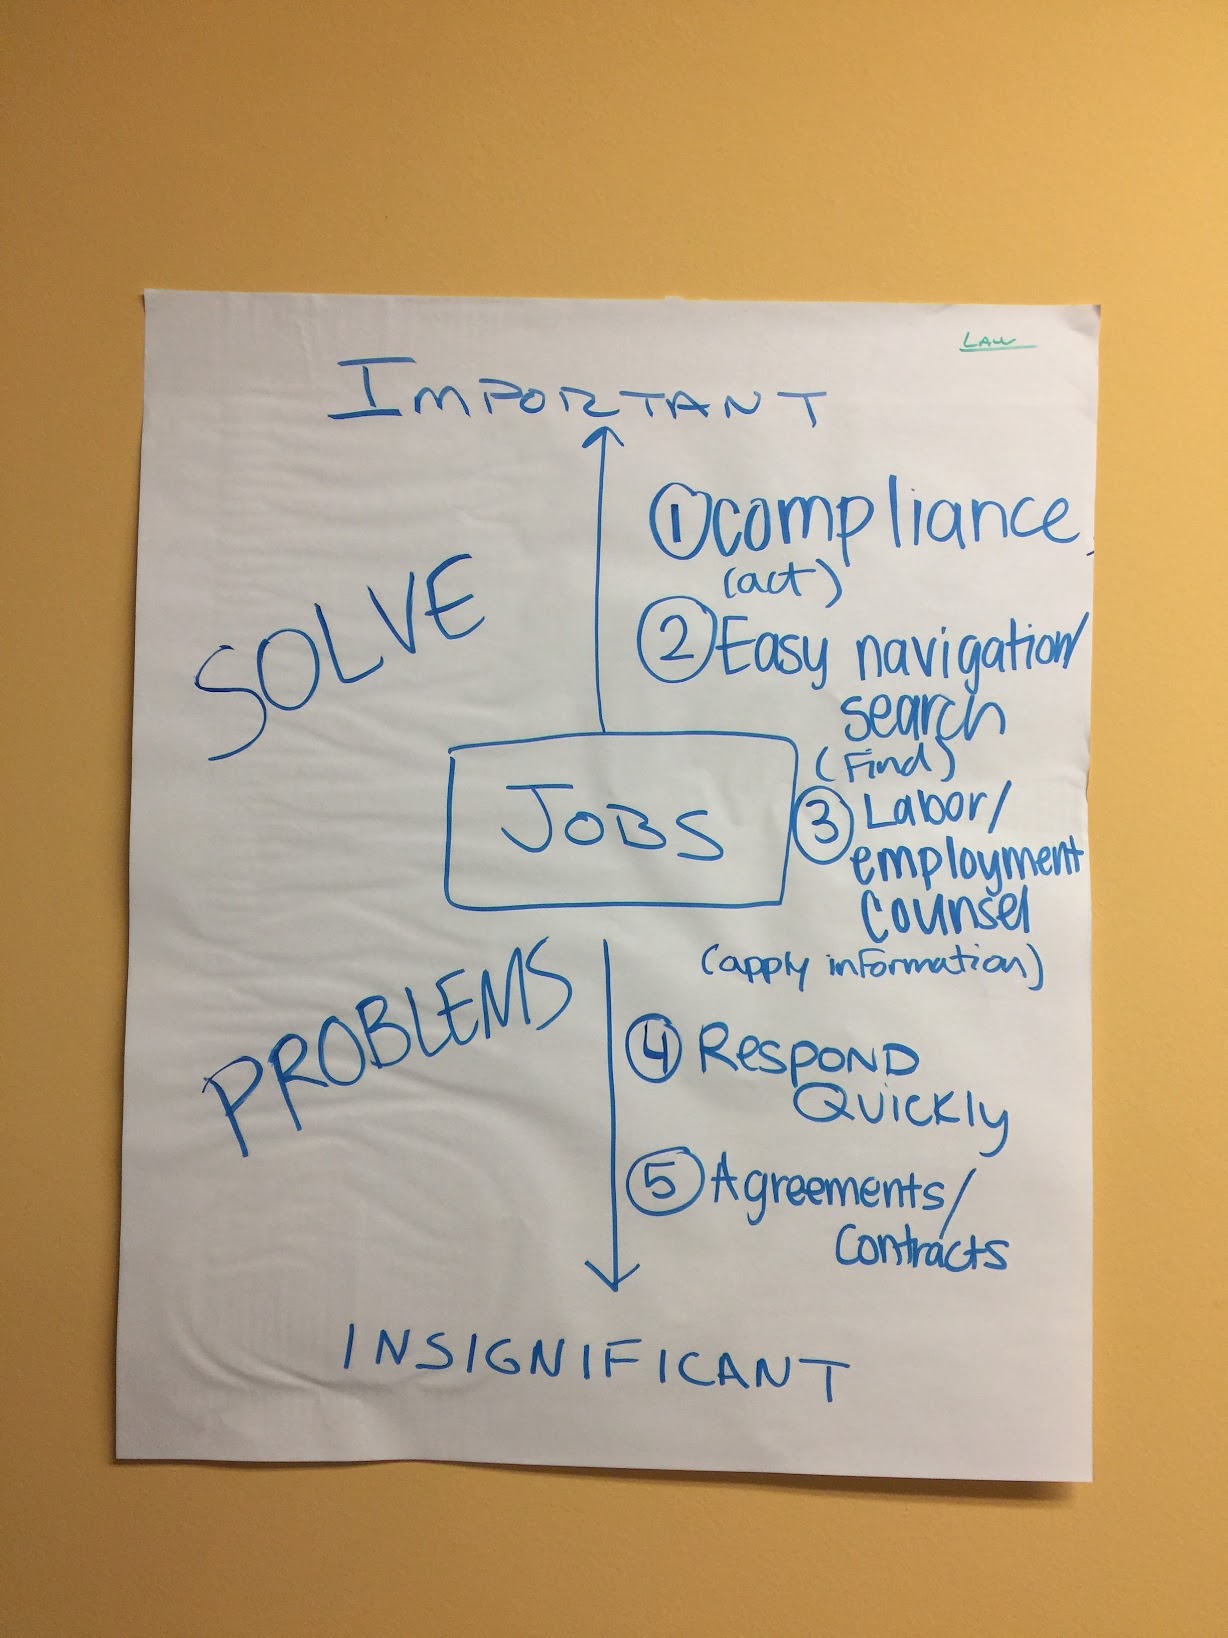 LAW
IMPORTANT
① compliance
(act)
② Easy navigation/
search
(Find)
SOLVE
JOBS
③ Labor/
employment
counsel
(apply information)
PROBLEMS
④ RESPOND
QUICKLY
⑤ Agreements/
contracts
INSIGNIFICANT